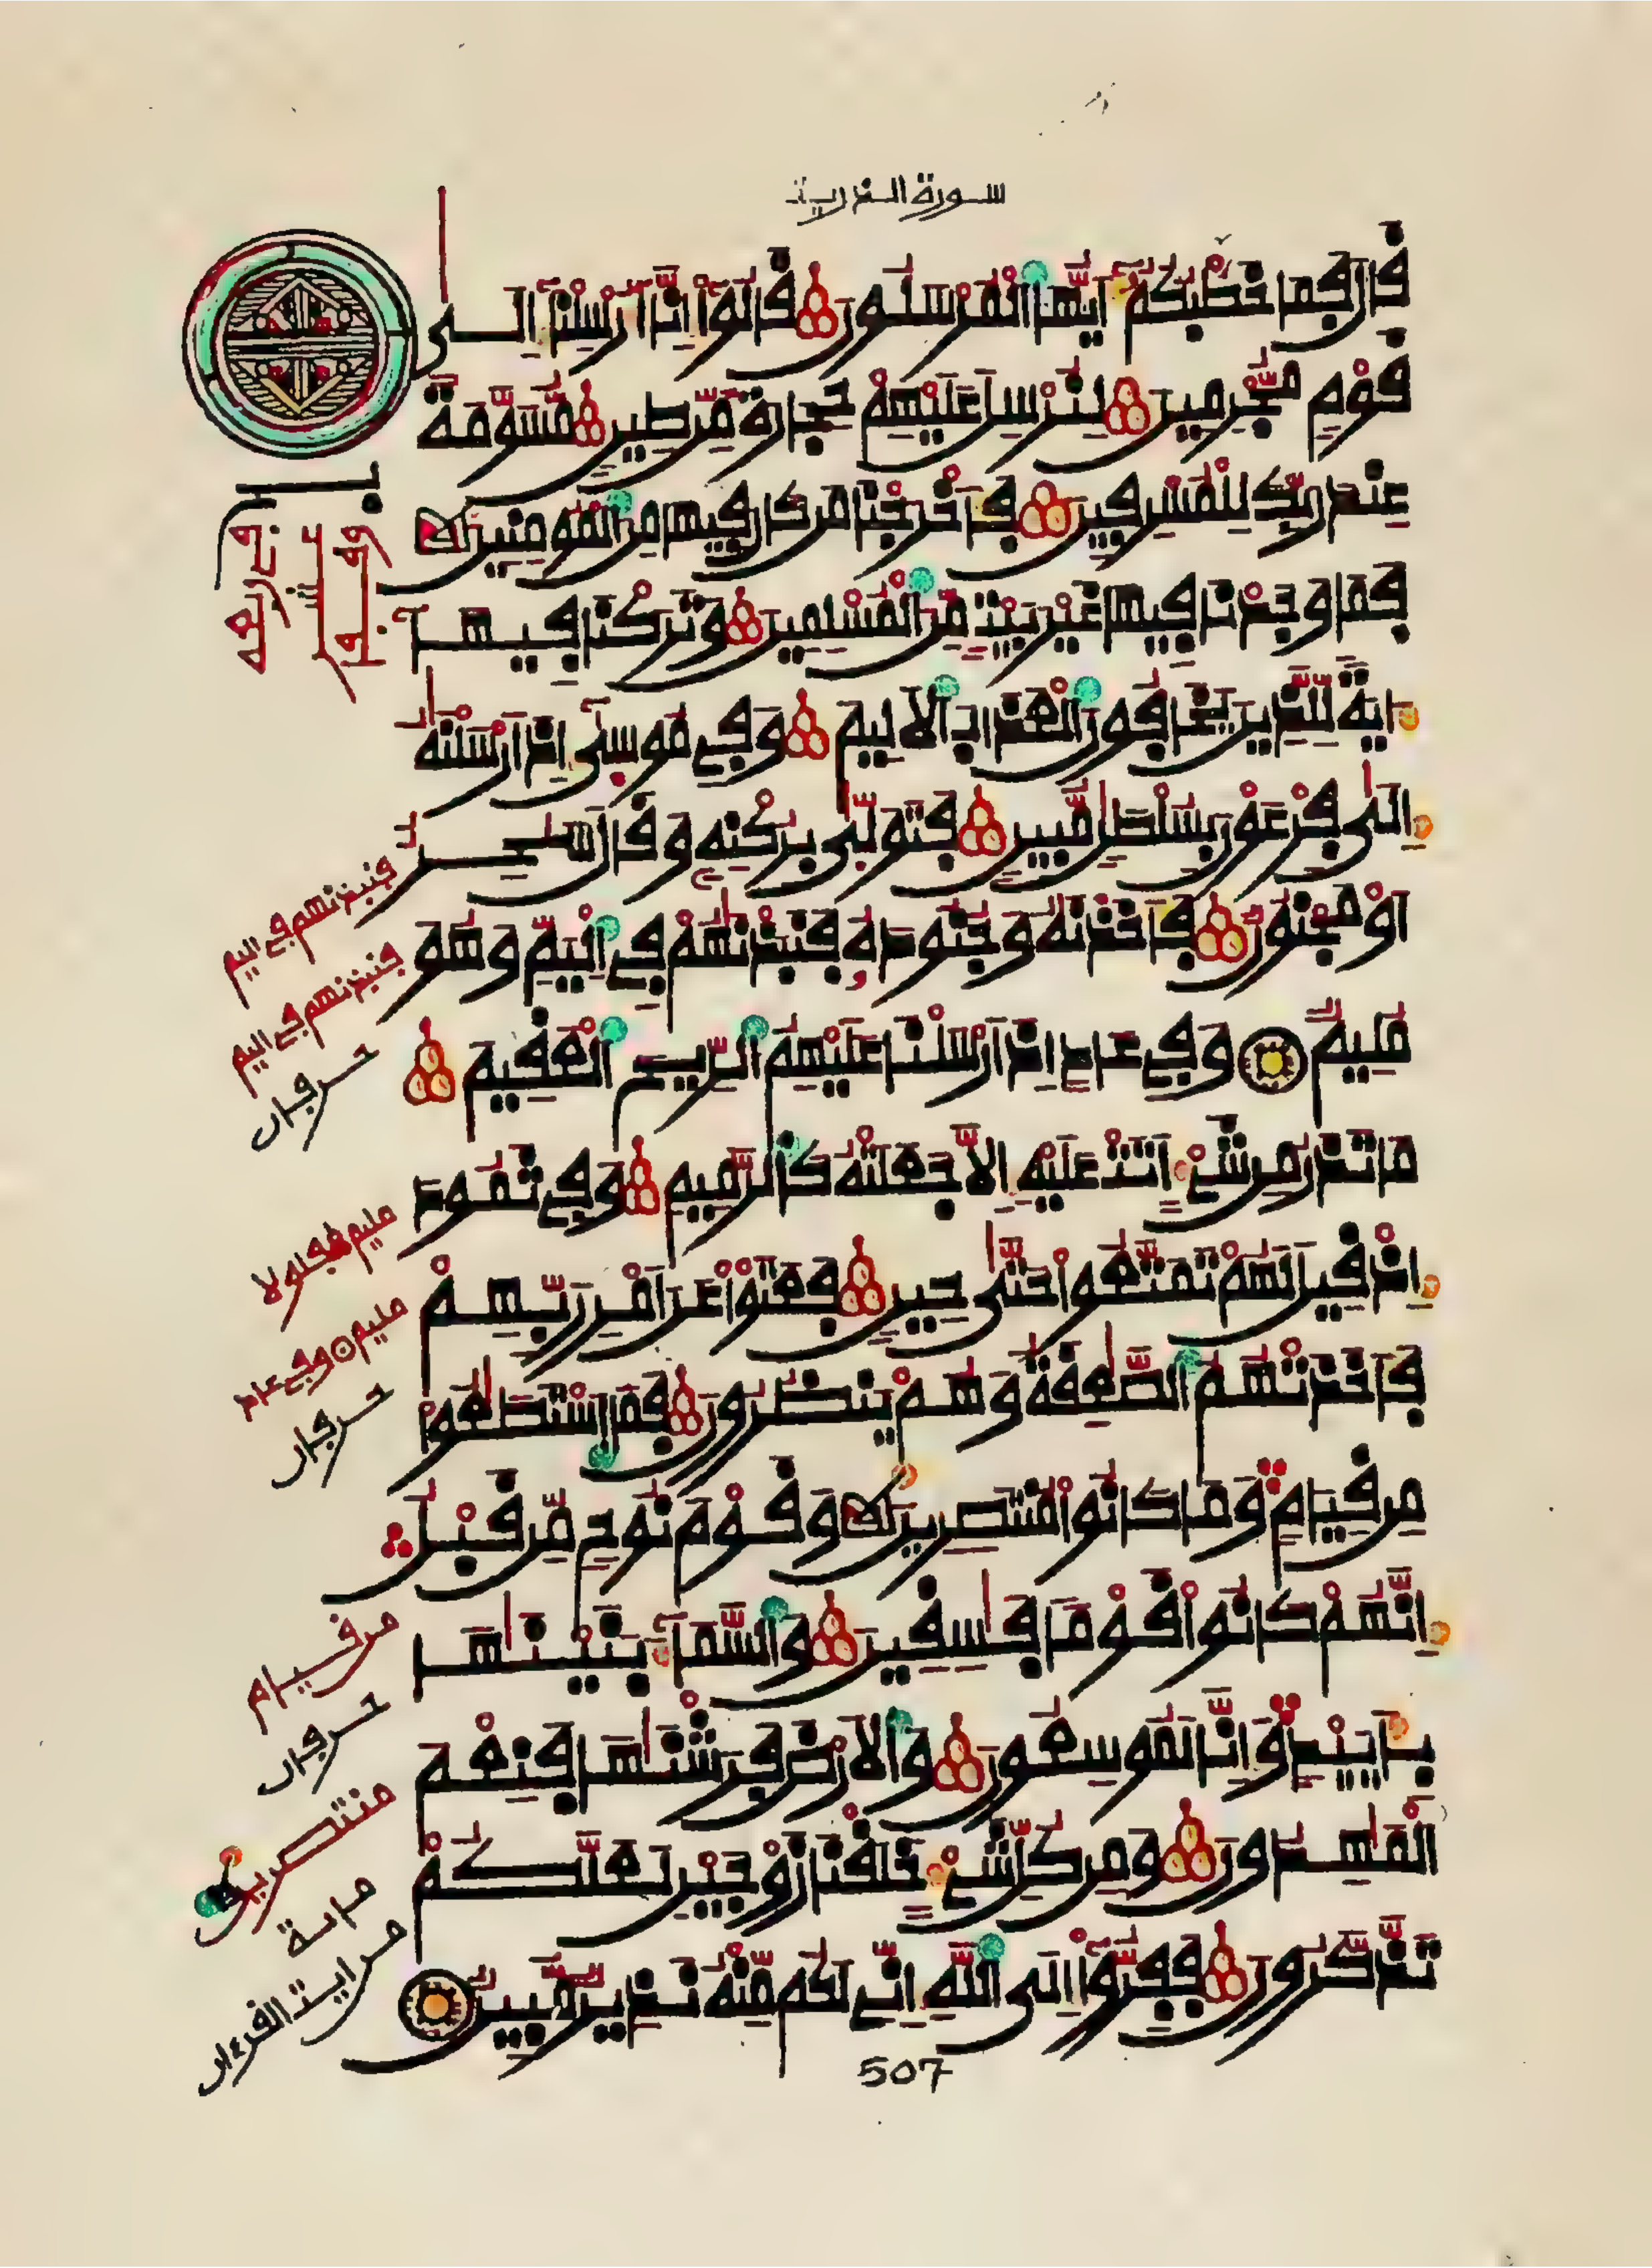 سورة الذريت
قال فما خطبكم أيها المرسلون قالوا إنا أرسلنا إلى
قوم مجرمين لنرسل عليهم حجارة من طين مسومة
عند ربك للمسرفين فأخرجنا من كان فيها من المومنين
فما وجدنا فيها غير بيت من المسلمين وتركنا فيها
ءاية للذين يخافون العذاب الاليم وفي موسى إذ ارسلنه
إلى فرعون بسلطن مبين فتولى بركنه وقال سحر
او مجنون فأخذنه وجنوده فنبذنهم في اليم وهو
مليم وفي عاد اذ ارسلنا عليهم الريح العقيم
ما تذر من شيء اتت عليه الا جعلته كالرميم وفي ثمود
إذ قيل لهم تمتعوا حتى حين فعتوا عن امر ربهم
فأخذتهم الصعقة وهم ينظرون فما استطعوا
من قيام وما كانوا منتصرين وقوم نوح من قبل
إنهم كانوا قوما فسقين والسماء بنينها
بأييد وإنا لموسعون والارض فرشنها فنعم
المهدون ومن كل شيء خلقنا زوجين لعلكم
تذكرون ففروا إلى الله إني لكم منه نذير مبين
507
فنبذنهم في اليم
فنبذنهم في اليم
حرفان
مليم
مليم وفي عاد
حرفان
من قيام
حرفان
منتصرين